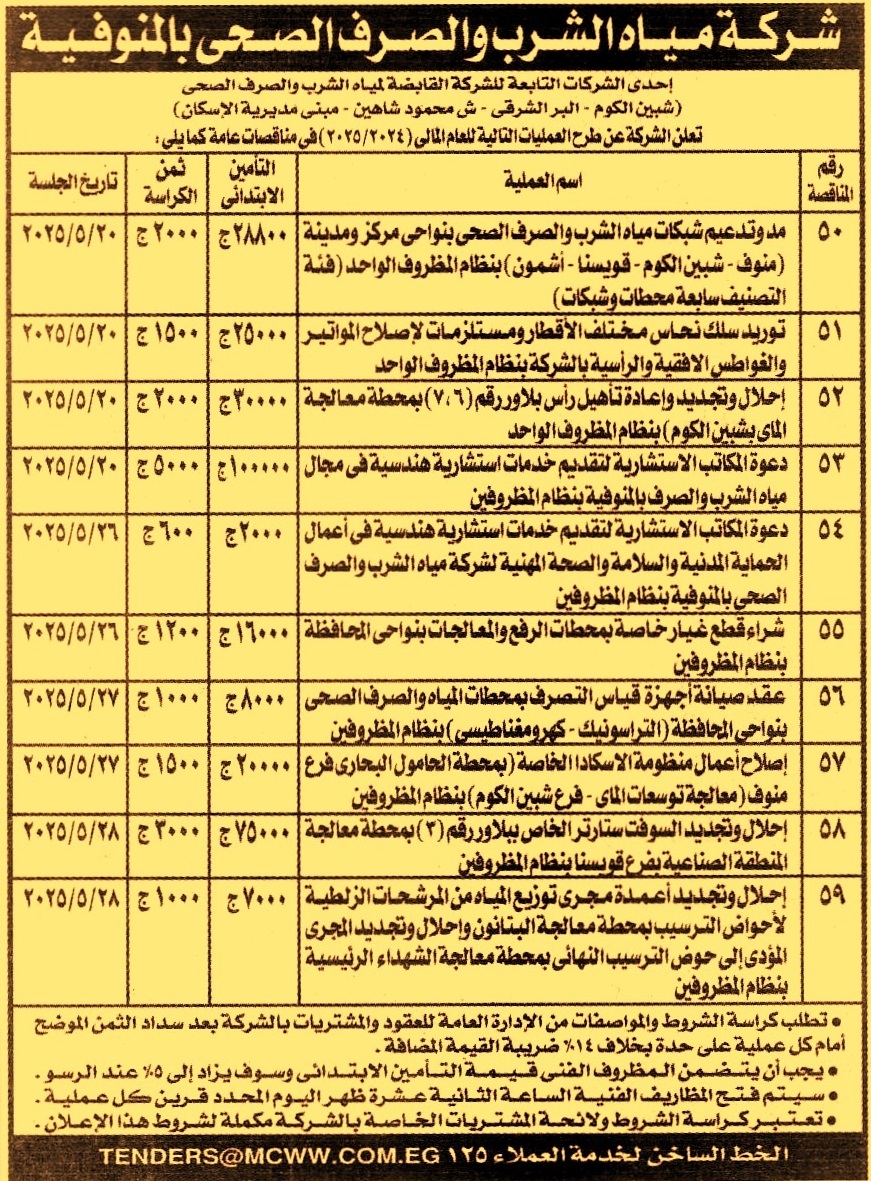 شركة مياه الشرب والصرف الصحى بالمنوفية
إحدى الشركات التابعة للشركة القابضة لمياه الشرب والصرف الصحى
(شبين الكوم - البر الشرقى - ش محمود شاهين - مبنى مديرية الإسكان)
تعلن الشركة عن طرح العمليات التالية للعام المالى (٢٠٢٥/٢٠٢٤) فى مناقصات عامة كما يلى:
رقم المناقصة اسم العملية التأمين الابتدائى ثمن الكراسة تاريخ الجلسة
٥٠ مد وتدعيم شبكات مياه الشرب والصرف الصحى بنواحى مركز ومدينة ٢٨٨٠٠ج ٢٠٠٠ ج ٢٠٢٥/٥/٢٠
(منوف - شبين الكوم - قويسنا - أشمون) بنظام المظروف الواحد (فئة
التصنيف سابعة محطات وشبكات)
٥١ توريد سلك نحاس مختلف الأقطار ومستلزمات لإصلاح المواتير ٢٥٠٠٠ج ١٥٠٠ ج ٢٠٢٥/٥/٢٠
والغواطس الافقية والرأسية بالشركة بنظام المظروف الواحد
٥٢ إحلال وتجديد وإعادة تأهيل رأس بلاور رقم (٧،٦) بمحطة معالجة ٣٠٠٠٠ج ٢٠٠٠ ج ٢٠٢٥/٥/٢٠
الماى بشبين الكوم) بنظام المظروف الواحد
٥٣ دعوة المكاتب الاستشارية لتقديم خدمات استشارية هندسية فى مجال ١٠٠٠٠٠ج ٥٠٠٠ ج ٢٠٢٥/٥/٢٠
مياه الشرب والصرف بالمنوفية بنظام المظروفين
٥٤ دعوة المكاتب الاستشارية لتقديم خدمات استشارية هندسية فى أعمال ٢٠٠٠ج ٦٠٠ ج ٢٠٢٥/٥/٢٦
الحماية المدنية والسلامة والصحة المهنية لشركة مياه الشرب والصرف
الصحى بالمنوفية بنظام المظروفين
٥٥ شراء قطع غيار خاصة بمحطات الرفع والمعالجات بنواحى المحافظة ١٦٠٠٠ج ١٢٠٠ ج ٢٠٢٥/٥/٢٦
بنظام المظروفين
٥٦ عقد صيانة أجهزة قياس التصرف بمحطات المياه والصرف الصحى ٨٠٠٠ج ١٠٠٠ ج ٢٠٢٥/٥/٢٧
بنواحى المحافظة (التراسونيك - كهرومغناطيسى) بنظام المظروفين
٥٧ إصلاح أعمال منظومة الاسكادا الخاصة (بمحطة الحامول البحارى فرع ٢٠٠٠٠ج ١٥٠٠ ج ٢٠٢٥/٥/٢٧
منوف (معالجة توسعات الماى - فرع شبين الكوم) بنظام المظروفين
٥٨ إحلال وتجديد السوفت ستارتر الخاص ببلاور رقم (٣) بمحطة معالجة ٧٥٠٠٠ج ٣٠٠٠ ج ٢٠٢٥/٥/٢٨
المنطقة الصناعية بفرع قويسنا بنظام المظروفين
٥٩ إحلال وتجديد أعمدة مجرى توزيع المياه من المرشحات الزلطية ٧٠٠٠ج ١٠٠٠ ج ٢٠٢٥/٥/٢٨
لأحواض الترسيب بمحطة معالجة البتانون وإحلال وتجديد المجرى
المؤدى إلى حوض الترسيب النهائى بمحطة معالجة الشهداء الرئيسية
بنظام المظروفين
• تطلب كراسة الشروط والمواصفات من الإدارة العامة للعقود والمشتريات بالشركة بعد سداد الثمن الموضح
أمام كل عملية على حدة بخلاف ١٤٪ ضريبة القيمة المضافة.
• يجب أن يتضمن المظروف الفنى قيمة التأمين الابتدائى وسوف يزاد إلى ٥٪ عند الرسو.
• سيتم فتح المظاريف الفنية الساعة الثانية عشرة ظهر اليوم المحدد قرين كل عملية.
• تعتبر كراسة الشروط ولائحة المشتريات الخاصة بالشركة مكملة لشروط هذا الإعلان.
الخط الساخن لخدمة العملاء ١٢٥ TENDERS@MCWW.COM.EG